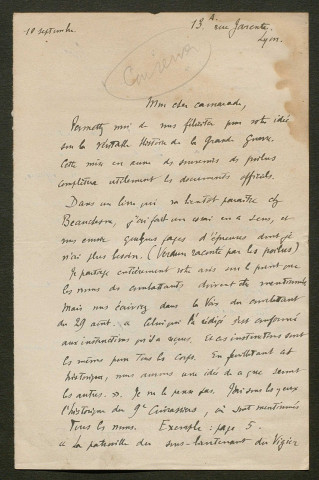 10 septembre
13 rue Jarente
Lyon.
Mon cher camarade,
Permettez moi de vous féliciter pour votre idée
sur la véritable Histoire de la Grande Guerre.
Cette mise en œuvre des souvenirs de poilus
complétera utilement les documents officiels.
Dans un livre qui va bientôt paraître chez
Beauchesne, j'ai fait un essai en ce sens, et
vous envoie quelques pages d'épreuves dont je
n'ai plus besoin. (Verdun raconté par les poilus)
Je partage entièrement votre avis sur le point que
les noms des combattants doivent être mentionnés
Mais vous écrivez dans la Voix du combattant
du 29 août. « Celui qui l'a rédigé s'est conformé
aux instructions qu'il a reçues. Et ces instructions sont
les mêmes pour tous les corps. En feuilletant cet
historique, nous aurons une idée de ce que seront
les autres. ». Je ne le pense pas. J'ai sous les yeux
l'historique du 9e Cuirassiers, où sont mentionnés
tous les noms. Exemple : page 5.
« La patrouille du sous-lieutenant du Vigier